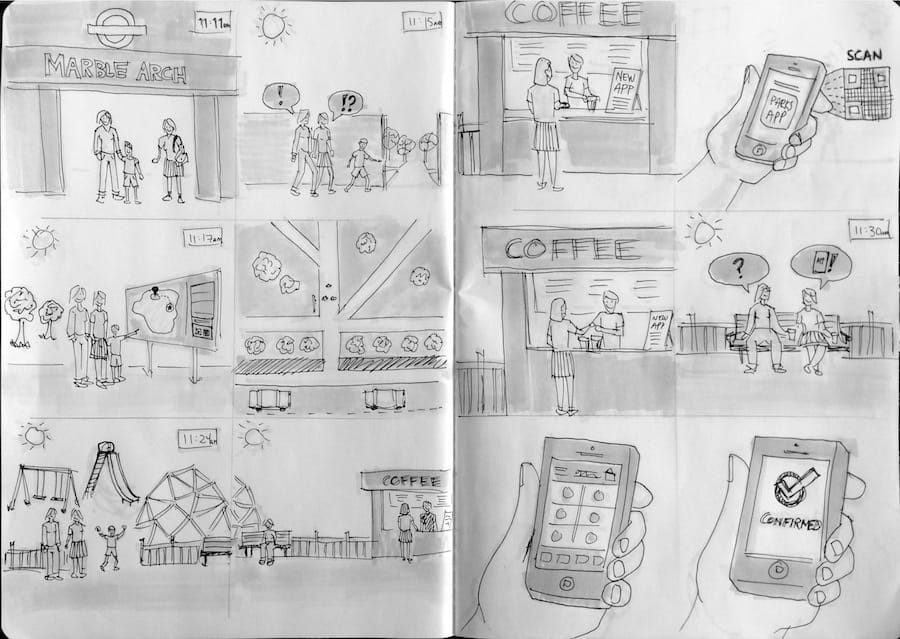 11:11am
MARBLE ARCH
11:15am
!
!?
11:17am
11:24am
COFFEE
COFFEE
NEW
APP
SCAN
PARKS
APP
COFFEE
NEW
APP
11:30am
?
!
CONFIRMED